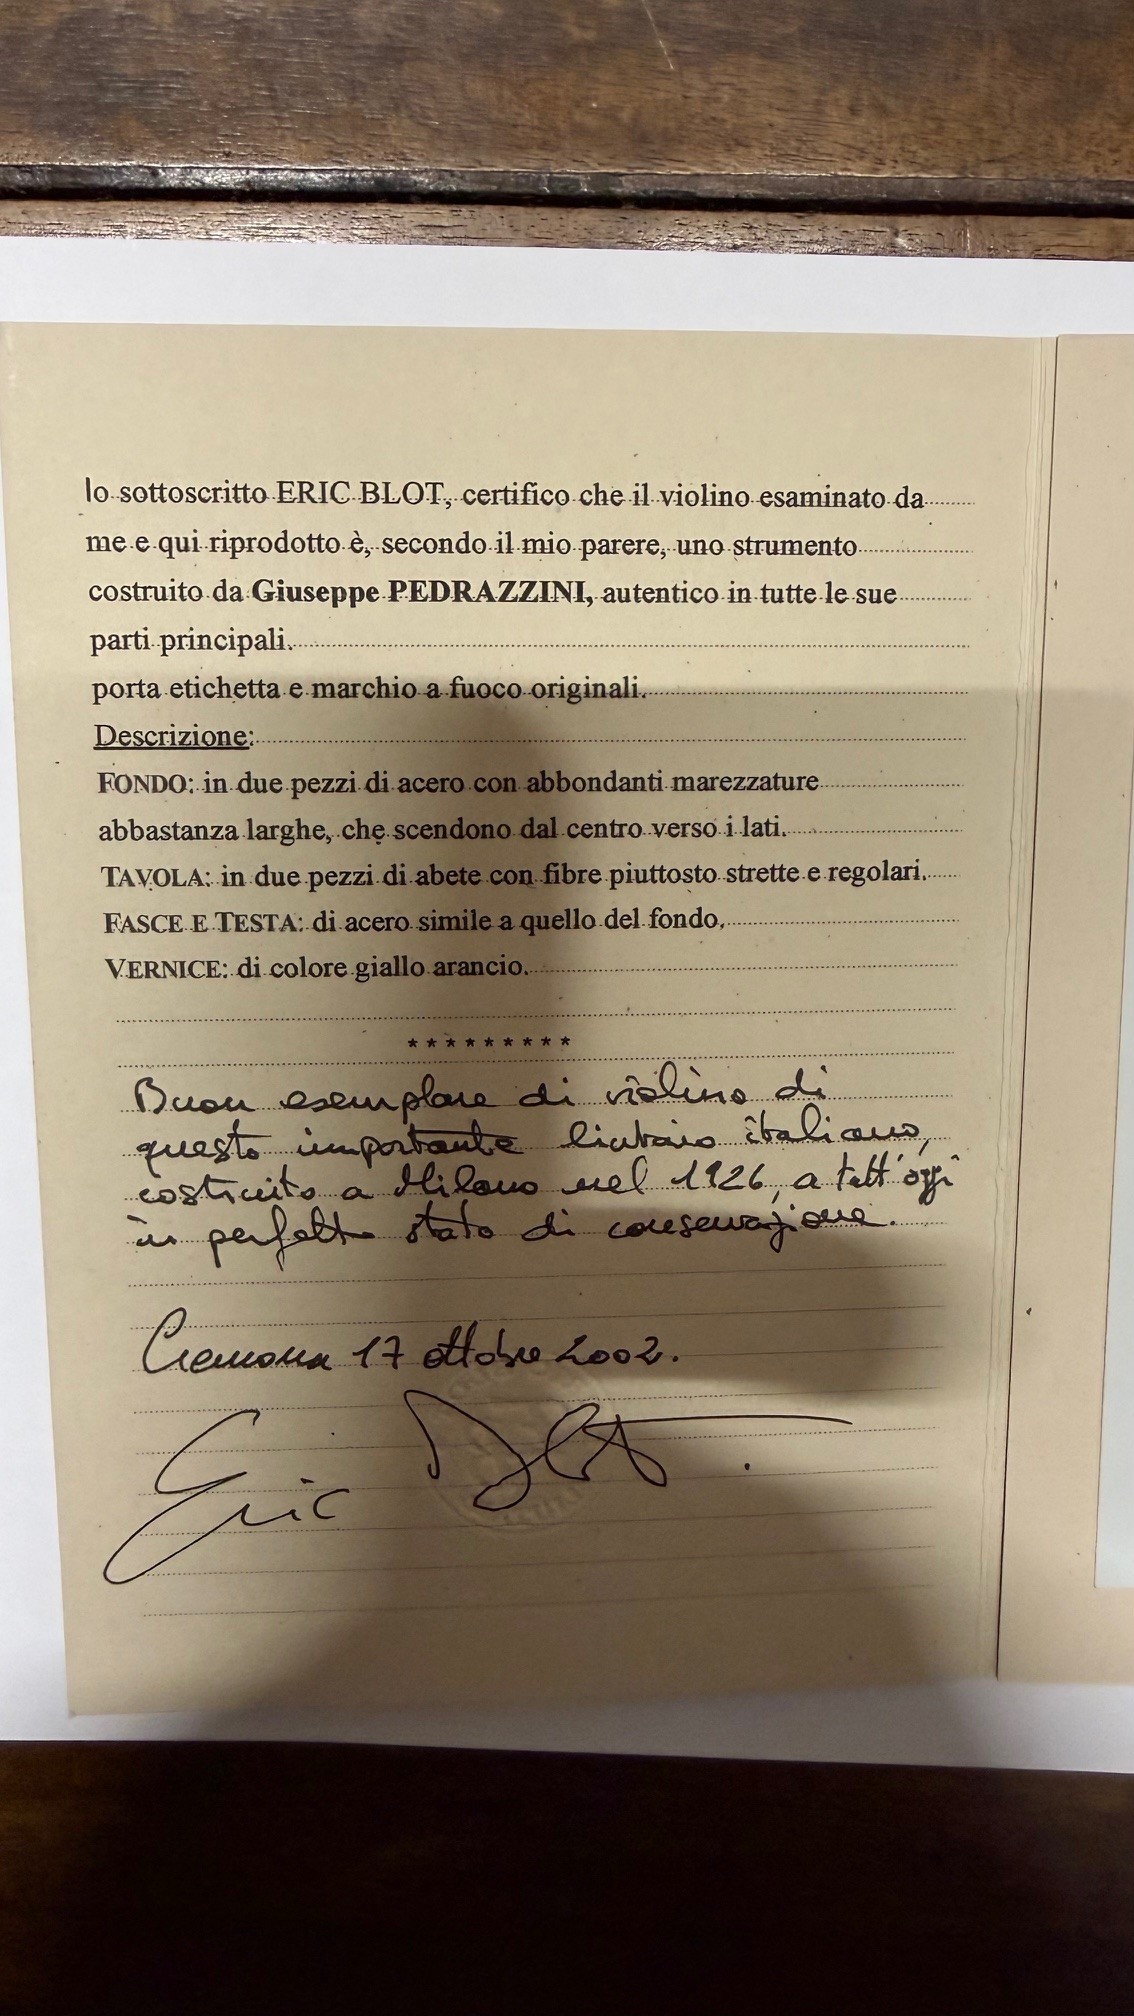 Io sottoscritto ERIC BLOT, certifico che il violino esaminato da
me e qui riprodotto è, secondo il mio parere, uno strumento
costruito da Giuseppe PEDRAZZINI, autentico in tutte le sue
parti principali.
porta etichetta e marchio a fuoco originali.
Descrizione:
FONDO: in due pezzi di acero con abbondanti marezzature
abbastanza larghe, che scendono dal centro verso i lati.
TAVOLA: in due pezzi di abete con fibre piuttosto strette e regolari.
FASCE E TESTA: di acero simile a quello del fondo.
VERNICE: di colore giallo arancio.
*********
Buon esemplare di violino di
questo importante liutaio italiano,
costruito a Milano nel 1926, a tutt'oggi
in perfetto stato di conservazione.
Cremona 17 ottobre 2002.
Eric Blot.